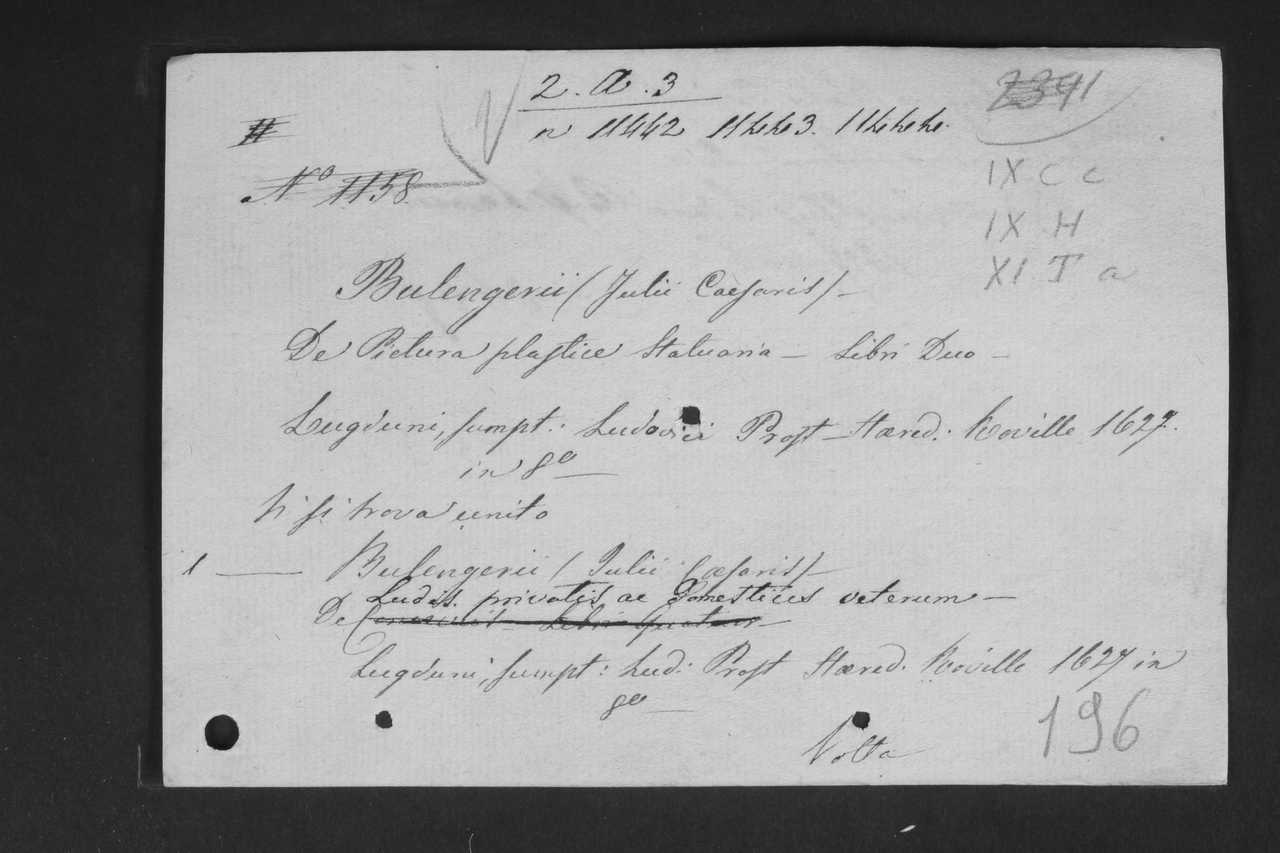 2. a. 3
n 11442 11443. 11444.
2391
IX C c
IX H
XI T a
No 1158
Bulengerii (Julii Caesaris) –
De Pictura plastice statuaria – Libri Duo –
Lugduni, sumpt: Ludovici Prost – Haered: Roville 1627.
in 8º
Vi si trova unito
1 — Bulengerii (Julii Caesaris) –
Ludis privatis ac Domesticis veterum –
De Conviviis – Libri Quatuor –
Lugduni, sumpt: Lud: Prost Haered. Roville 1627 in
8º
Volta
196